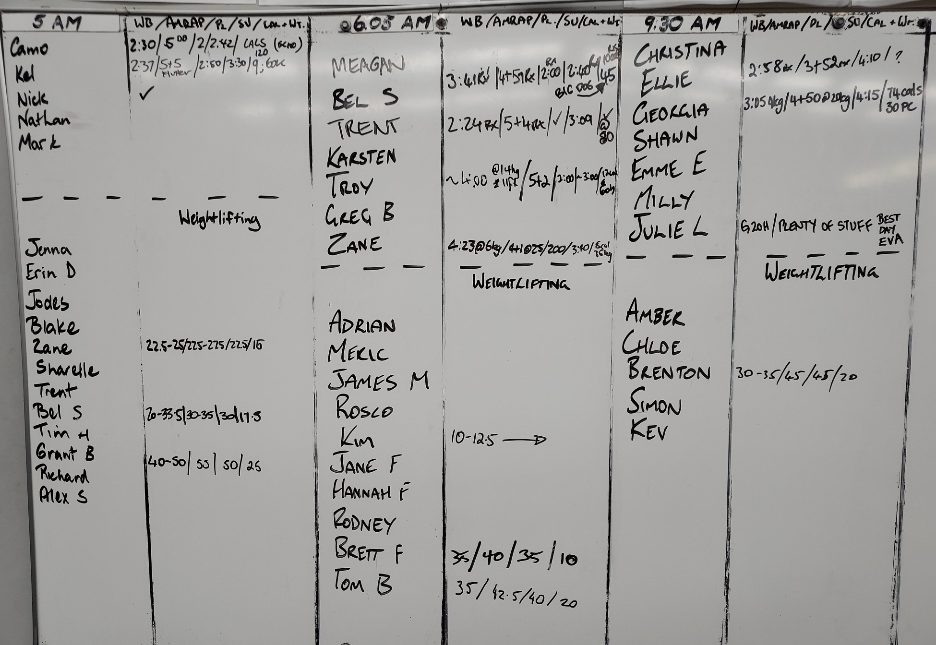 5 AM
WB/AMRAP/PL/SU/CAL+WT.
Camo
2:30/5⁰⁰/2/2:42/ CALS
Kel
2:37/5+5/2:50/3:30/
Nick
✓
Nathan
Mark
Weightlifting
Jenna
Erin D
Jodes
Blake
Zane
22.5-25/225-225/225/15
Sharelle
Trent
Bel S
20-33.5/30-35/30/17.5
Tim H
Grant B
40-50/55/50/25
Richard
Alex S
6.05 AM
WB/AMRAP/PL/SU/CAL+WT
MEAGAN
3:41RX/4+59RX/2:00/2:40/45
BEL S
TRENT
2:24RX/5+4RX/✓/3:09/✓
@
80
KARSTEN
TROY
~4:00 @14kg/5+2/2:00/~3:00/
GREG B
ZANE
4:23@6kg/4+1@25/200/3:40/
WEIGHTLIFTING
ADRIAN
MERIC
JAMES M
ROSCO
KIM
10-12.5 →
JANE F
HANNAH F
RODNEY
BRETT F
35/40/35/10
TOM B
35/42.5/40/20
9.30 AM
WB/AMRAP/PL/SU/CAL+WT.
CHRISTINA
2:58RX/3+52RX/4:10/?
ELLIE
GEORGIA
3:05@4kg/4+50@20kg/4:15/74cals
30 PC
SHAWN
EMME E
MILLY
JULIE L
G20H/PLENTY OF STUFF BEST
DAY
EVA
WEIGHTLIFTING
AMBER
CHLOE
BRENTON
30-35/45/45/20
SIMON
KEV